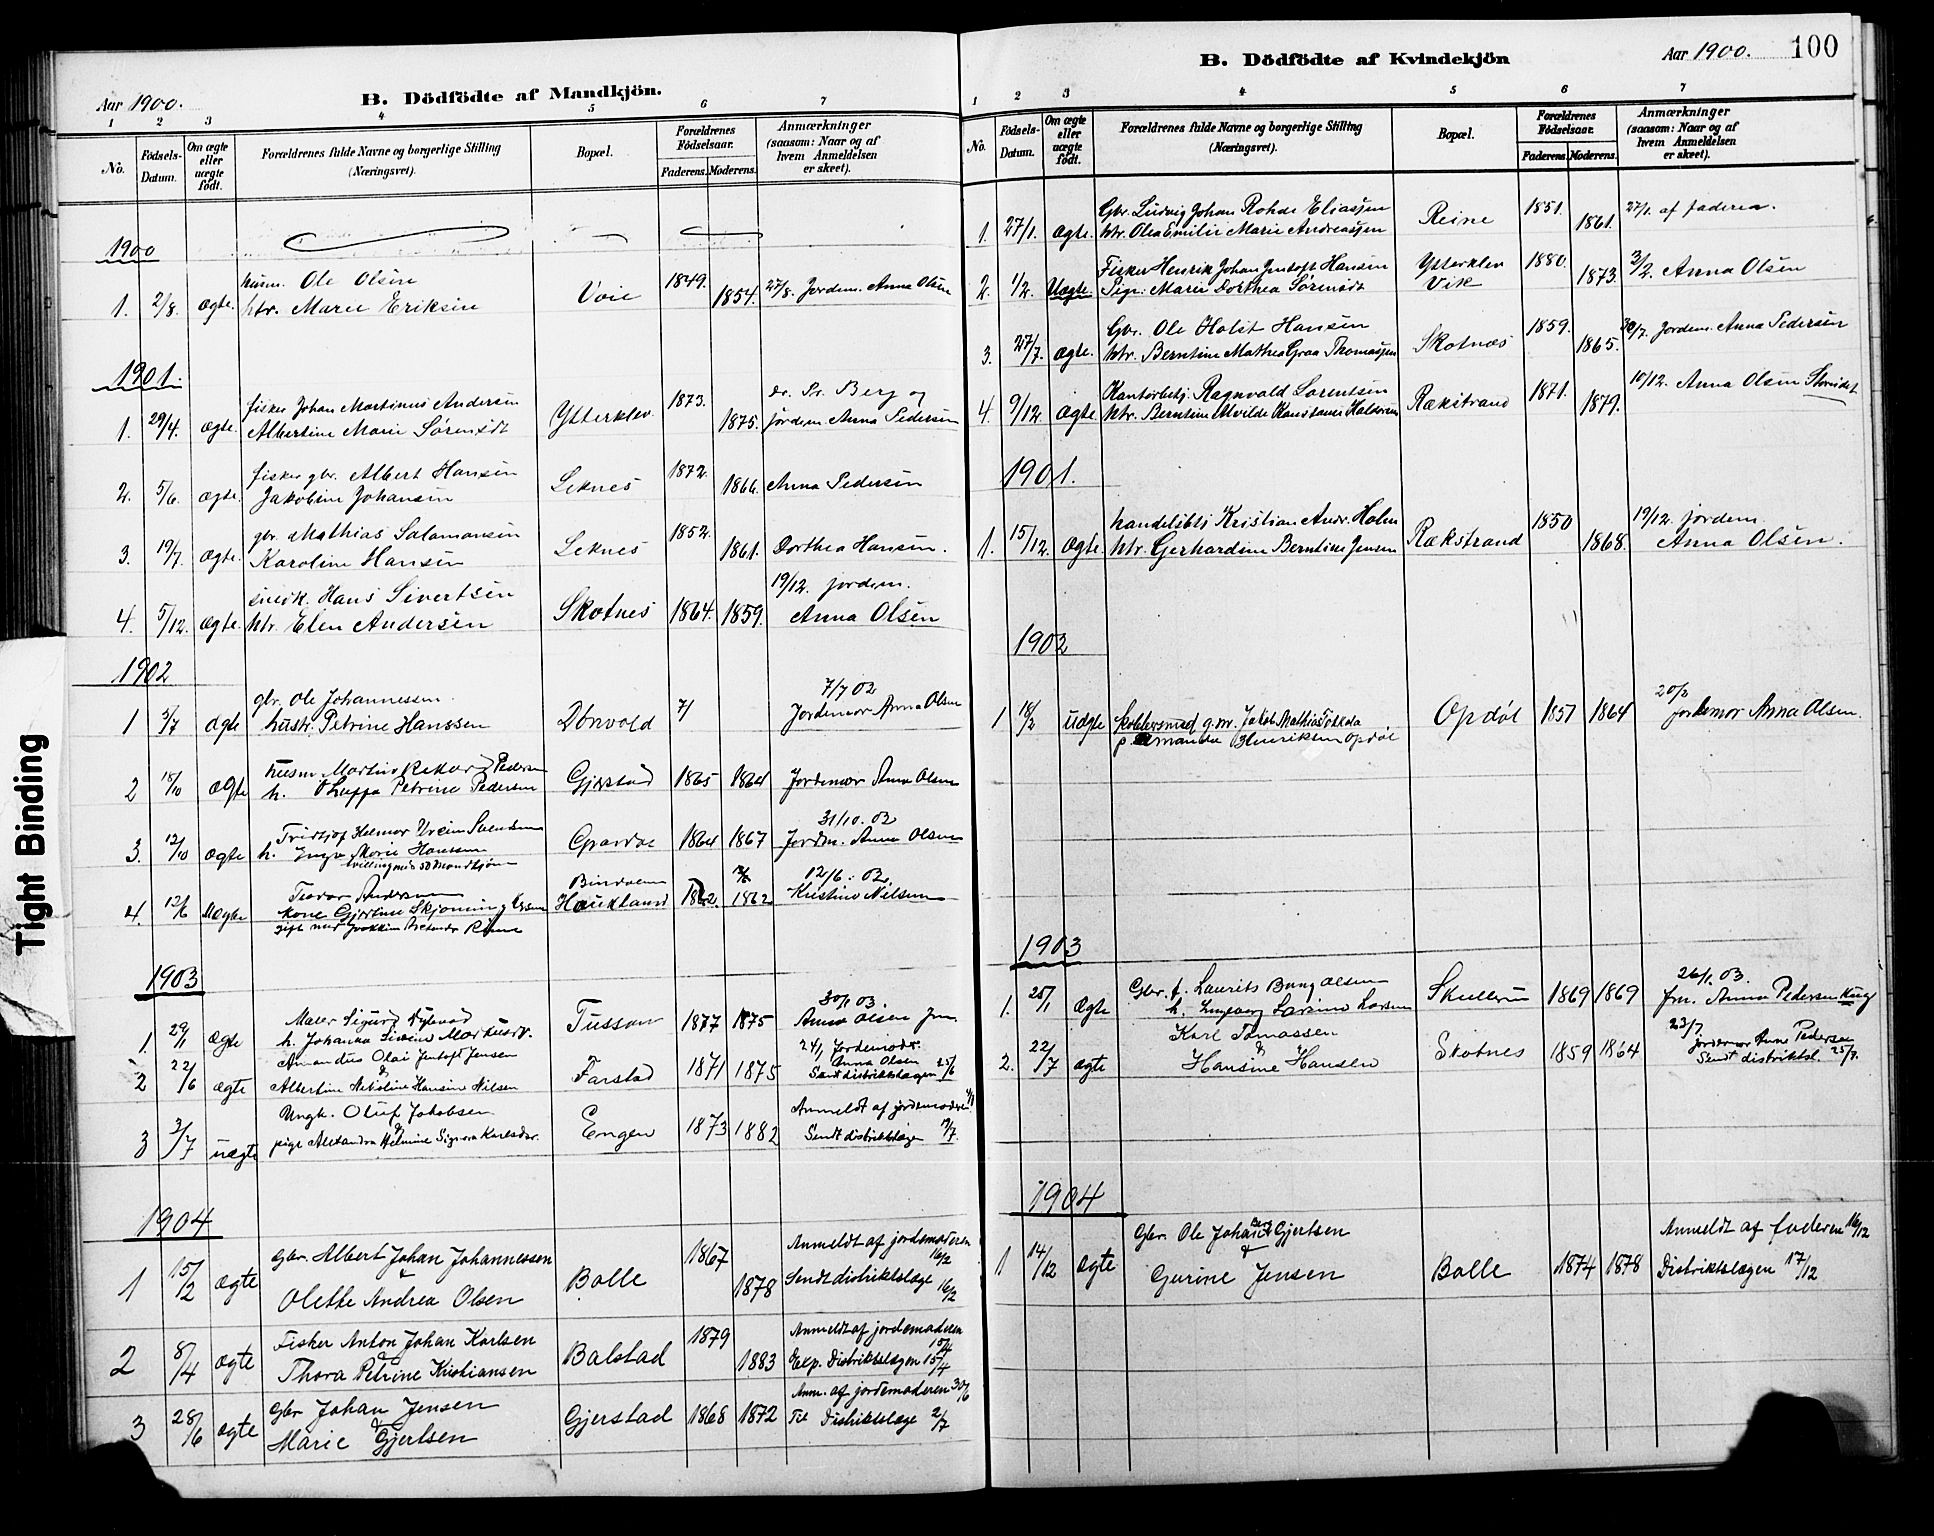 Tight Binding
Aar 1900.
B. Dödfödte af Mandkjön.
1 2 3 4 5 6 7
No.
Födsels-Datum.
Om ægte eller uægte födt.
Forældrenes fulde Navne og borgerlige Stilling (Næringsvei).
Bopæl.
Forældrenes Födselsaar.
Faderens. Moderens.
Anmærkninger (saasom: Naar og af hvem Anmeldelsen er skeet).
1900
husm. Ole Olsen
1. 2/8. ægte. htr. Marie Eriksen Voie 1849. 1854. 27/8. Jordem. Anna Olsen
1901.
fisker Johan Martinus Andersen 1873. Berg og
1. 29/4. ægte. Albertine Marie Sörensdt Ytterklev. 1875. jördem. Anna Pedersen
fisker gbr. Albert Hansen 1872.
2. 5/6. ægte. Jakobine Johansen Leknes 1866. Anna Pedersen
gbr. Mathias Salamonsen 1852.
3. 19/7. ægte. Karoline Hansen Leknes 1861. Dorthea Hansen.
Hans Sivertsen 19/12. jordem.
4. 5/12. ægte. htr. Elen Andersen Skotnes 1864. 1859. Anna Olsen
1902
gbr. Ole Johannessen 7/7 02
1 5/7 ægte hustr. Petrine Hanssen 7/ Jordemor Anna Olsen
husm Martin Rikard Pedersen
2 18/10 ægte h. Petrine Pedersen Gjerstad 1865 1864 Jordemor Anna Olsen
Fridtjof Helmer Svendsen 31/10. 02
3. 12/10 ægte h. Inga Marie Hanssen 1864 1867 Jordm. Anna Olsen
Andersen 12/6. 02.
4. 12/6 Uægte kone Haukland 1862. 1862 Kristine Nilsen
gift med
1903
Maler Sigurd 30/1 03.
1. 29/1 ægte h. Johanna Tussan 1877 1875 Anna Olsen Jm.
Amandus Olai Jentoft Jensen 24/1 Jordemoder
2 22/6 ægte & Farstad 1871 1875 Anna Olsen
Albertine Nikoline Hansine Nilsen Sendt distriktslægen 25/6
Ungk. Oluf Jakobsen Anmeldt af jordemoderen
3 3/7 uægte pige Alexandra Helmine Signora Karlsdtr. Engen 1873 1882 Sendt distriktslæge
1904
gbr. Albert Johan Johannessen 1867 Anmeldt af jordemoderen 16/2
1 15/2 ægte & Bolle 1878 Sendt distriktslæge 16/2
Olette Andrea Olsen
Fisker Anton Johan Karlsen 1879 Anmeldt af jordemoderen 15/4
2 8/4 ægte & Thora Petrine Kristiansen Balstad 1883 Exp. Distriktslægen 15/4
gbr Johan Jensen Anm. af jordemoderen 30/6
3 28/6 ægte & Marie Gjertsen Gjerstad 1868 1872 Til Distriktslæge 2/7
B. Dödfödte af Kvindekjön
Aar 1900. 100
1 2 3 4 5 6 7
No.
Födsels-Datum.
Om ægte eller uægte födt.
Forældrenes fulde Navne og borgerlige Stilling (Næringsvei).
Bopæl.
Forældrenes Födselsaar.
Faderens. Moderens.
Anmærkninger (saasom: Naar og af hvem Anmeldelsen er skeet).
Gbr. Ludvig Johan Rohde Eliassen 1851. 27/1. af faderen.
1. 27/1. ægte. htr. Olea Emilie Marie Andreassen Reine 1861.
Fisker Henrik Johan Jentoft Hansen Ytterklev 1880. 3/2. Anna Olsen
2. 1/2. Uægte Pige: Marie Dorthea Sörensdt Vik 1873.
Gbr. Ole Holst Hansen 1859. 30/7. Jordem. Anna Pedersen
3. 27/7. ægte. htr. Berntine Mathea Graa Thomassen Skotnæs 1865.
Kontorbetj. Ragnvald Lorentsen 1871. 10/12. Anna Olsen
4. 9/12. ægte htr. Berntine Alvilde Konstanse Rækstrand 1879.
1901.
handelsbtj Kristian Andr. Holm 1850 19/12. jordem
1. 15/12. ægte htr. Gerhardine Berntine Jensen Rækstrand 1868. Anna Olsen.
1902
20/2
1 18/2 uægte g.m. Jakob Mathias Opdöl 1851 1864 Jordemor Anna Olsen.
p. Amanda Henriksen Opdöl
1903
Gbr. f. Laurits Bang Olsen 26/1. 03.
1. 25/1 ægte h. Ingeborg Larsen 1869 1869 Jm. Anna Pedersen
Karl Tomassen 23/7
2. 22/7 ægte & Skotnes 1859 1864 jordemor Anne Pedersen
Hansine Hansen Sendt distriktsl. 25/7.
1904
Gbr. Ole Johan Berg Gjertsen Anmeldt af faderen 16/12
1 14/12 ægte & Gurine Jensen Bolle 1874 1878 Distriktslægen 17/12